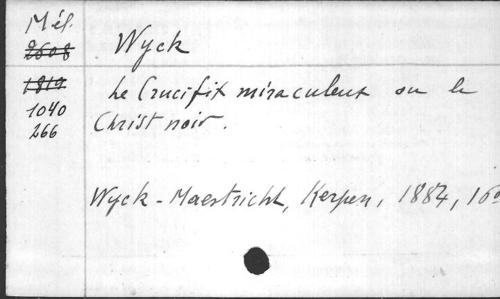 Mél.
2608
Wyck
1819
1040
266
Le Crucifix miraculeux ou le
Christ noir.
Wyck-Maestricht, Kerpen, 1884, 16°